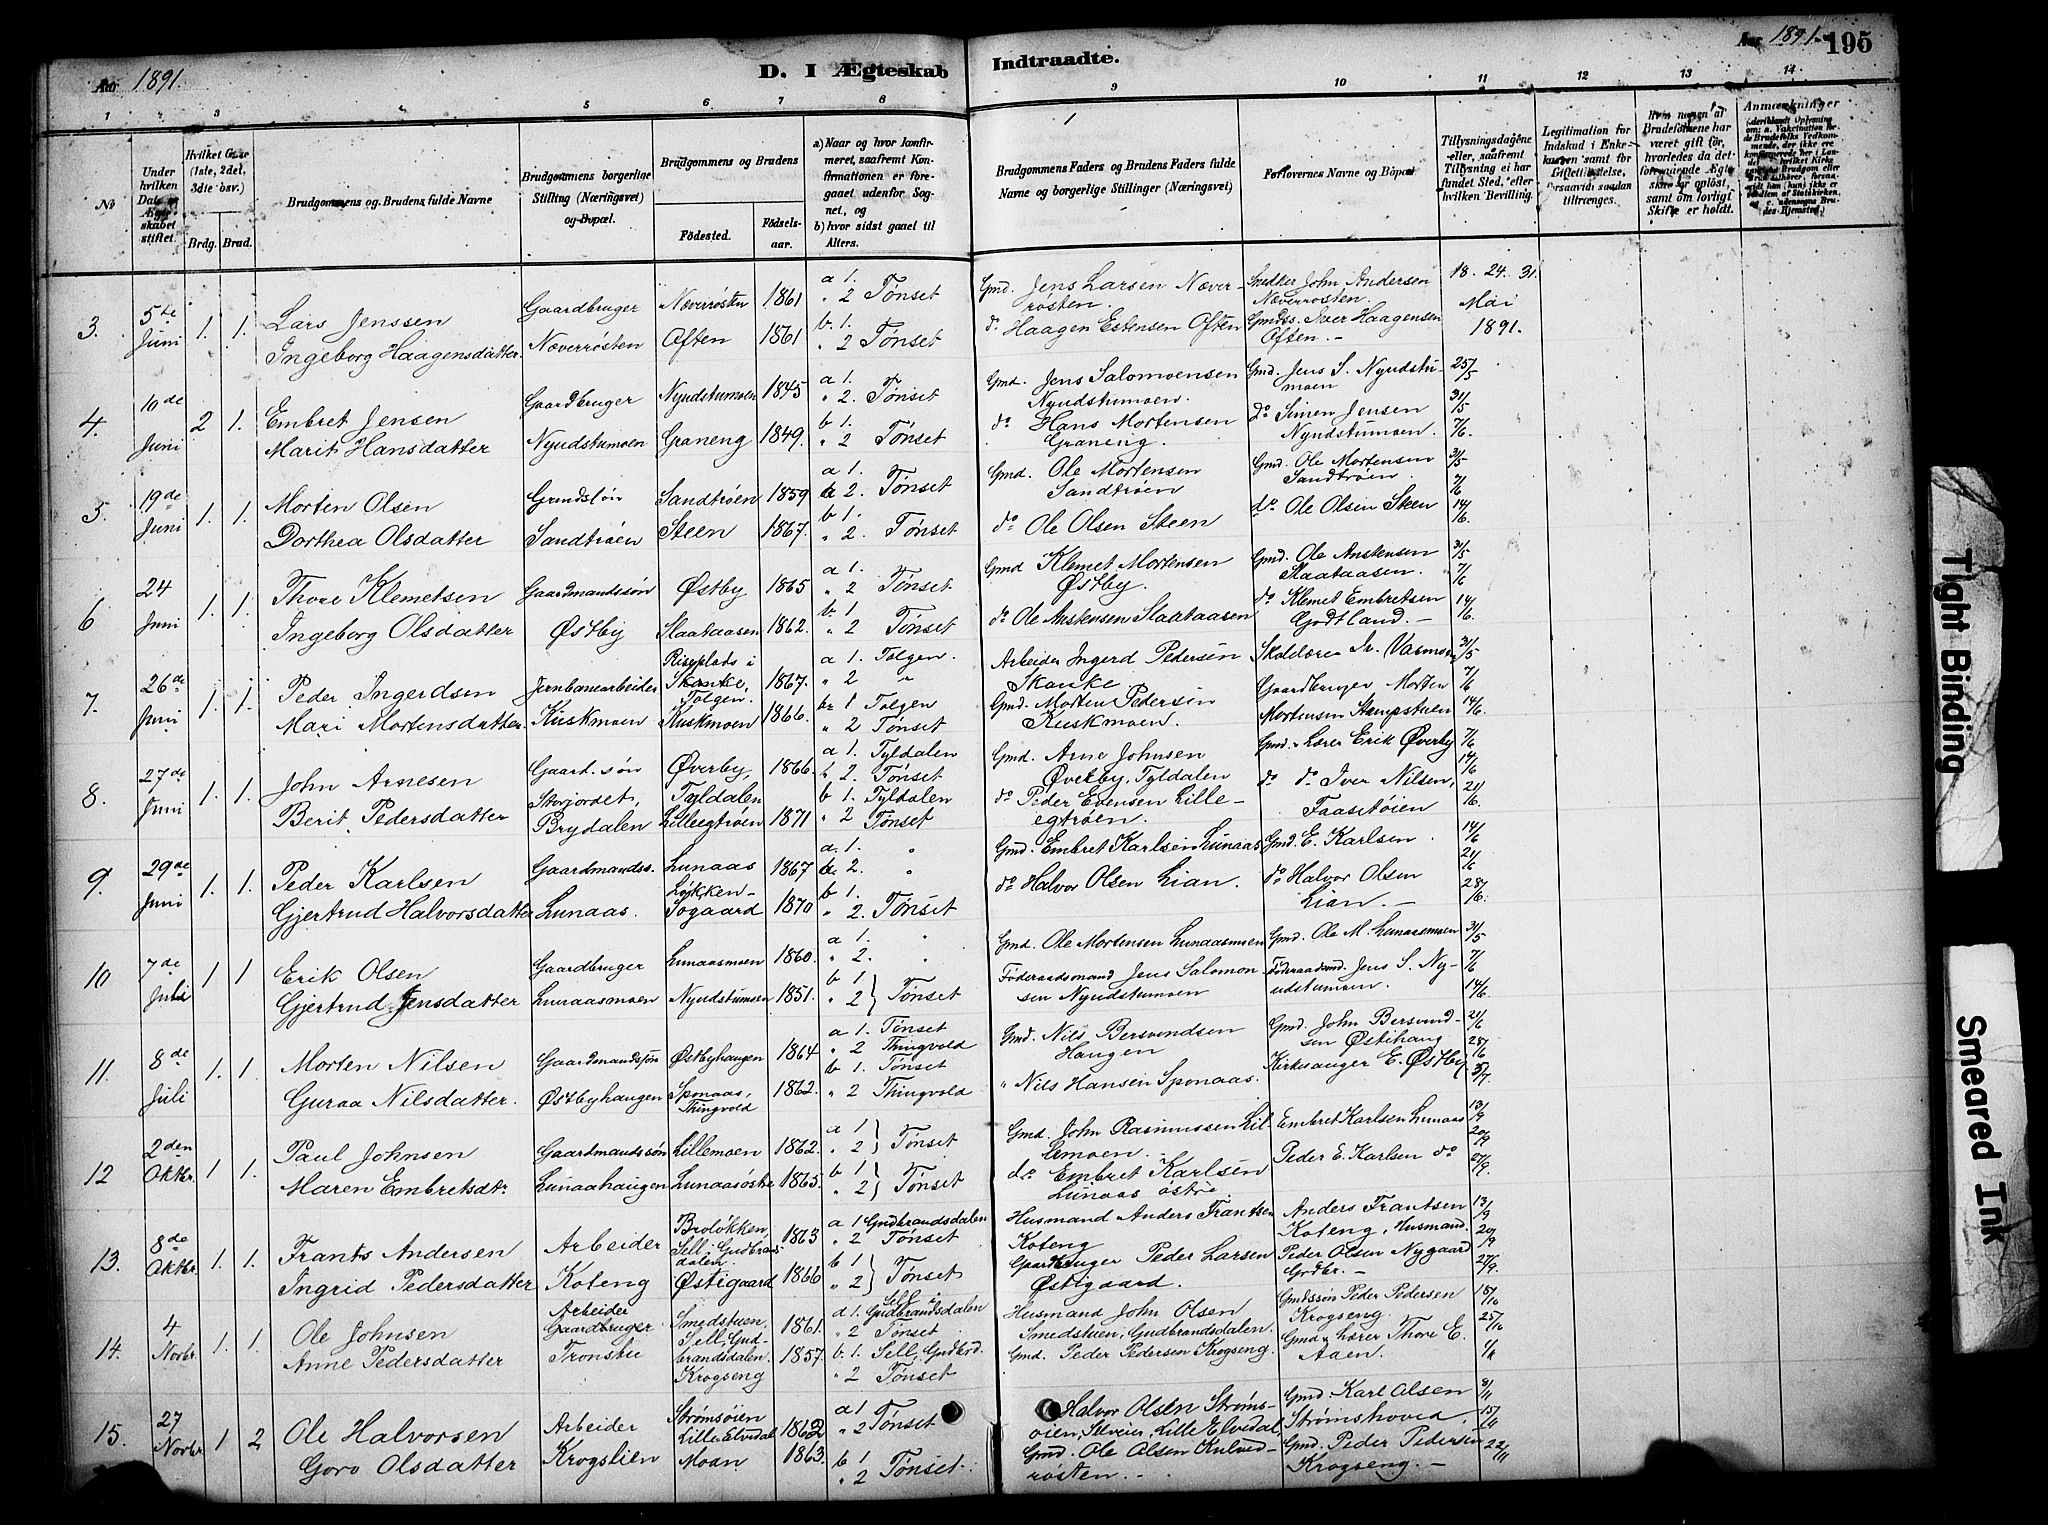 Aar 1891.
D. I Ægteskab Indtraadte.
Aar 1891. 195
1 2 3 5 6 7 8 9 10 11 12 13 14
No
Under hvilken Datum Ægteskabet stiftet
Hvilket Gang (1ste, 2det, 3die osv.)
Brdg. Brud.
Brudgommens og Brudens fulde Navne
Brudgommens borgerlige Stilling (Næringsvei) og Bopæl.
Brudgommens og Brudens
Födested.
Födselsaar.
a) Naar og hvor konfirmeret, saafremt Konfirmationen er foregaaet udenfor Sognet, og
b) hvor sidst gaaet til Alters.
Brudgommens Faders og Brudens Faders fulde Navne og borgerlige Stillinger (Næringsvei)
Forlovernes Navne og Bopæl
Tillysningsdagene eller, saafremt Tillysning ei har fundet Sted, efter hvilken Bevilling.
Legitimation for Indskud i Enkekassen samt for Giftetilladelse, forsaavidt saadan tiltrænges.
Hvis nogen af Brudefolkene har været gift för, hvorledes da det foregaaende Ægteskab er oplöst, samt om lovligt Skifte er holdt.
Anmærkninger
3. 5te Juni 1. 1. Lars Jenssen Gaardbruger Næverrösten 1861 a 1. " 2 Tønset Gmd. Jens Larsen Næverrösten. Snedker John Andersen Næverrosten. 18. 24. 31.
Ingeborg Haagensdatter Næverrosten Often 1861 b. 1. " 2 Tønset do Haagen Estensen Often Gmdss. Iver Haagensen Often. - Mai 1891.
4. 10de Juni 2 1. Embret Jensen Gaardbruger Nyudstumoen 1845 a 1. " 2. Tønset Gmd. Jens Salomonsen Nyudstumoen. Gmd. Jens S. Nyudstumoen 25/5
Marit Hansdatter Nyudstumoen Graneng 1849. b 1. " 2 Tønset do Hans Mortensen Graneng. do Simen Jensen Nyudstumoen. 31/5 7/6.
5. 19de Juni 1. 1. Morten Olsen Gmdsön Sandtröen 1859 a 1. 2. Tønset Gmd. Ole Mortensen Sandtröen Gmd. Ole Mortensen Sandtröen. 31/5 7/6
Dorthea Olsdatter Sandtröen Steen 1867. b 1. " 2. Tønset do Ole Olsen Steen do Ole Olsen Steen 14/6.
6 24 Juni 1. 1. Thore Klemetsen Gaardmandssön Østby 1865 a 1. " 2 Tønset Gmd Klemet Mortensen Østby. Gmd. Ole Anstensen Slaataasen. 31/5 7/6
Ingeborg Olsdatter Østby Slaataasen 1862. b. 1 " 2 Tønset do Ole Anstensen Slaataasen do Klemet Embretsen Godtland. - 14/6.
7. 26de Juni 1. 1. Peder Ingerdsen Jernbanearbeider Riseplads i Skanke, Tolgen. 1867. a 1. Tolgen. " 2 " Arbeider Ingerd Pedersen Skanke. Skolelærer 31/5 7/6
Mari Mortensdatter Kuskmoen Kuskmoen 1866. b 1 Tolgen " 2 Tønset Gmd. Morten Pedersen Kuskmoen. Gaardbruger Morten Mortensen 14/6.
8. 27de Juni 1. 1. John Arnesen Gaard. sön Storjordet, Øverby, Tyldalen 1866. a 1. Tyldalen 2. Tønset Gmd. Arne Johnsen Øverby, Tyldalen Gmd. Lærer Erik Øverby 7/6 14/6
Berit Pedersdatter Brydalen Lilleegtröen 1871 b 1. Tyldalen " 2 Tønset do Peder Estensen Lilleegtröen. do do Iver Nilsen, 21/6.
9. 29de Juni 1. 1. Peder Karlsen Gaardmandss. Lunaas 1867 a. 1. " 2. " Gmd. Embret Karlsen Lunaas Gmd. E. Karlsen 14/6 21/6
Gjertrud Halvorsdatter Lunaas. Løkken- 1870 b 1. " 2. Tønset do Halvor Olsen Lian. do Halvor Olsen Lian. - 28/6.
10 7de Juli 1 1 Erik Olsen Gaardbruger Lunaasmoen 1860. a 1. " " 2. " Gmd. Ole Mortensen Lunaasmoen Gmd. Ole M. Lunaasmoen 31/5
Gjertrud Jensdatter Lunaasmoen Nyudstumoen 1851. b 1 " 2 } Tønset Föderaadsmand Jens Salomonsen Nyudstumoen Föderaadsmd. Jens S. Nyudstumoen. 7/6 14/6.
11. 8de Juli 1. 1. Morten Nilsen Gaardmandssön Østbyhaugen 1864 a 1. Tønset " 2 Thingvold Gmd. Nils Bersvendsen Haugen Gmd. John Bersvendsen Østihaug 21/6 28/6
Guraa Nilsdatter. Østbyhaugen Sponaas, Thingvold 1862. b 1. Tønset " 2 Thingvold " Nils Hansen Sponaas. Kirkesanger E. Østby 5/7.
12 2den Oktbr. 1 1. Paul Johnsen Gaardmandssön Lillemoen 1862. a 1 " 2 } Tønset Gmd. John Rasmussen Lillemoen. Embret Karlsen Lunaas 13/9 20/9
Maren Embretsdtr. Lunaahaugen Lunaasöstre 1865. b 1 " 2 } Tønset do Embret Karlsen Lunaas östre Peder E. Karlsen do 27/9.
13. 8de Oktbr. 1. 1. Frants Andersen Arbeider Brolökken, Sell, Gudbrandsdalen. 1863 a 1 Gudbrandsdalen " 2 Tønset. Husmand Anders Frantsen Koteng Anders Frantsen Koteng, Husmand. 13/9 20/9
Ingrid Pedersdatter Koteng Østigaard 1866 b 1 " 2 } Tønset Gaardbruger Peder Larsen Østigaard. Peder Olsen Nygaard Gdbr. - 27/9.
14. 4 Novbr. 1. 1. Ole Johnsen Arbeider Gaardbruger Smedstuen, Sell, Gudbrandsdalen. 1861. a 1. Sell i Gudbrandsdalen " 2 Tønset. Husmand John Olsen Smedstuen, Gudbrandsdalen. Gmdssön Peder Pedersen Krogseng. 18/10 25/10
Anne Pedersdatter Tronslie Krogseng 1857. b. 1. Sell, Gudbrd. " 2 Tønset Gmd. Peder Pedersen Krogseng. Gmd & Lærer Thore E. Aaen. 1/11
15. 27 Novbr. 1 2. Ole Halvorsen Arbeider Strömsöien Lille Elvedal 1862 a 1 " 2 Tønset Halvor Olsen Strömsöien, Lille Elvedal, Gmd. Karl Olsen Strömshoved. 8/11 15/11
Goro Olsdatter Krogslien Moan 1863. b 1 " 2 Tønset. Gmd. Ole Olsen Kulvedrösten. Gmd. Peder Pedersen Krogseng. - 22/11
Tight Binding
Smeared Ink